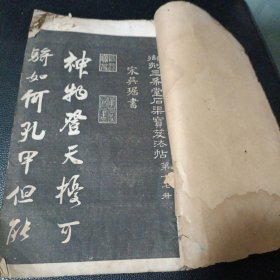 御刻三希堂石渠寶笈法帖 第十七册
宋吳琚書
神物登天擾可
騎如何孔甲但能